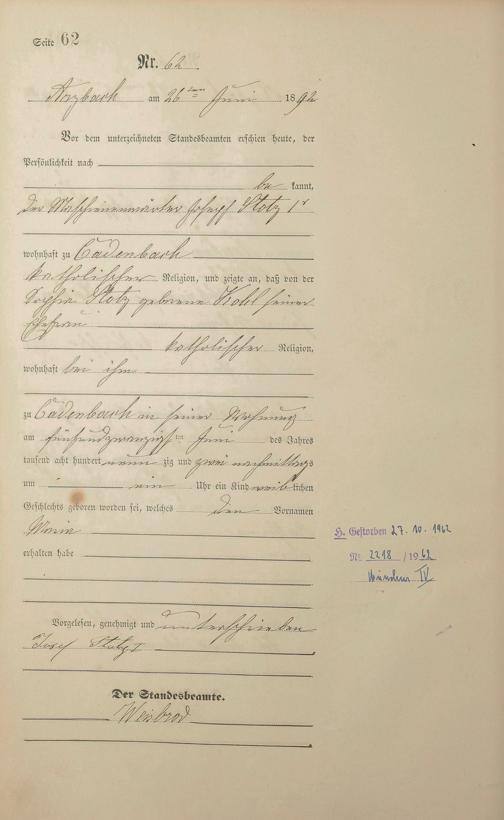 Seite 62
Nr. 62.
Arzbach am 26ten Juni 1892
Vor dem unterzeichneten Standesbeamten erschien heute, der
Persönlichkeit nach
be kannt,
der Maschinenwärter Joseph Stotz Ir
wohnhaft zu Cadenbach
katholischer Religion, und zeigte an, daß von der
Sophia Stotz geborene Kohl seiner
Ehefrau
katholischer Religion,
wohnhaft bei ihm
zu Cadenbach in seiner Wohnung
am fünfundzwanzigsten Juni des Jahres
tausend acht hundert neun zig und zwei nachmittags
um ein Uhr ein Kind weib lichen
Geschlechts geboren worden sei, welches den Vornamen
Maria
erhalten habe
H. Gestorben 27.10.1962
Nr. 2218 /1962
München IV
Vorgelesen, genehmigt und unterschrieben
Josef Stotz I
Der Standesbeamte.
Weisbrod